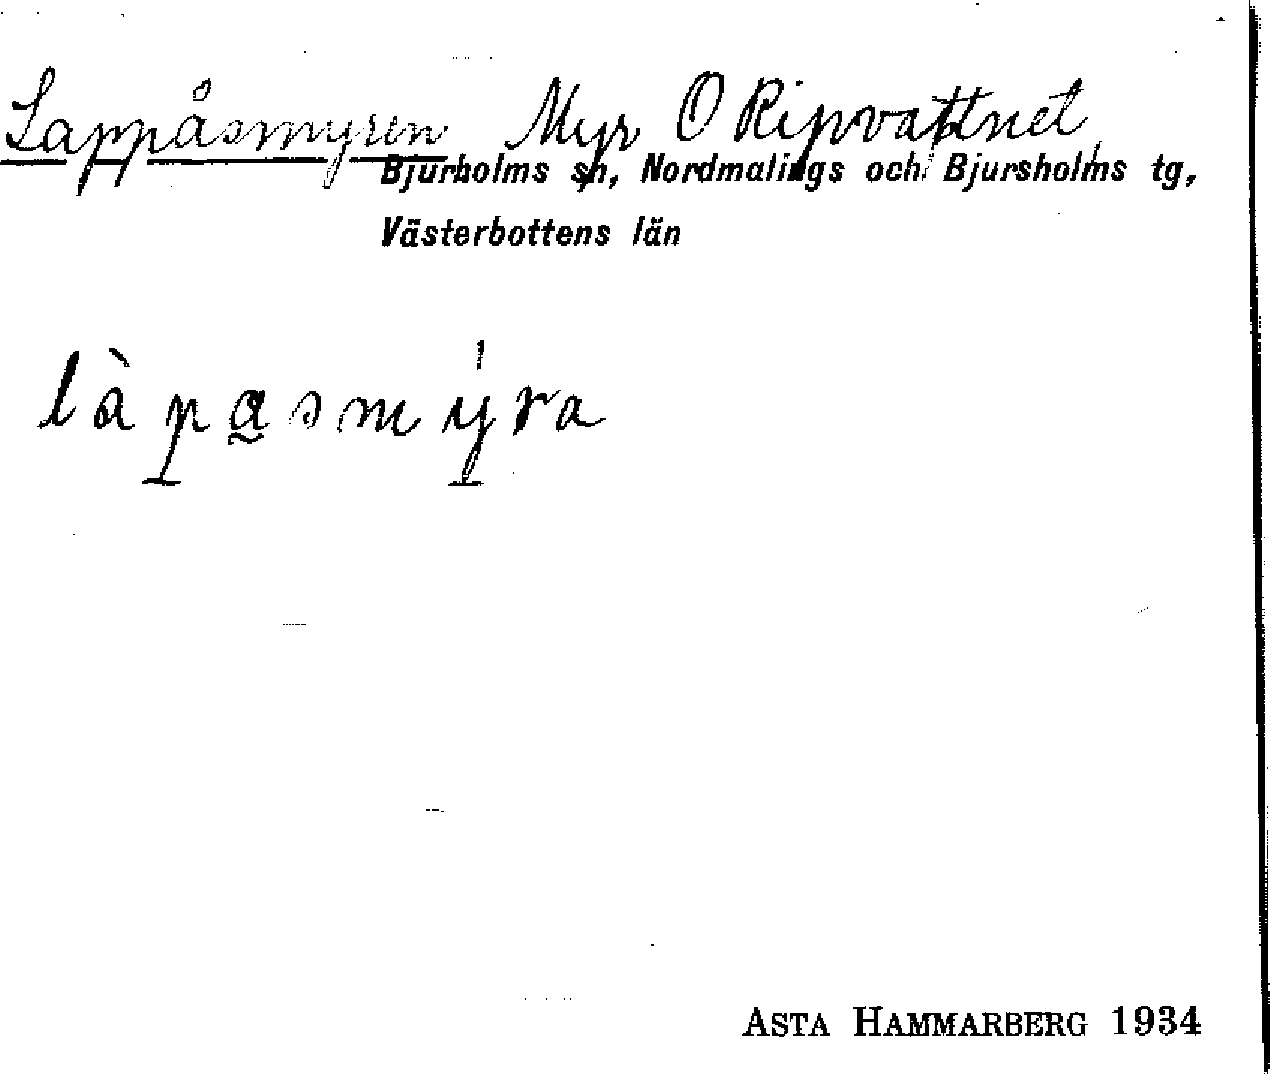 Lappåsmyren Myr O Ripvattnet
Bjurholms sn, Nordmalings och Bjursholms tg,
Västerbottens län
làpa̰smy̍ra
ASTA HAMMARBERG 1934